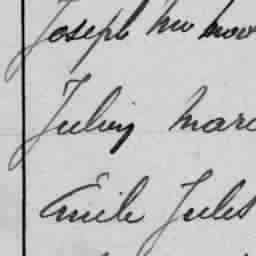 Joseph
Julien Marc
Emile Jules